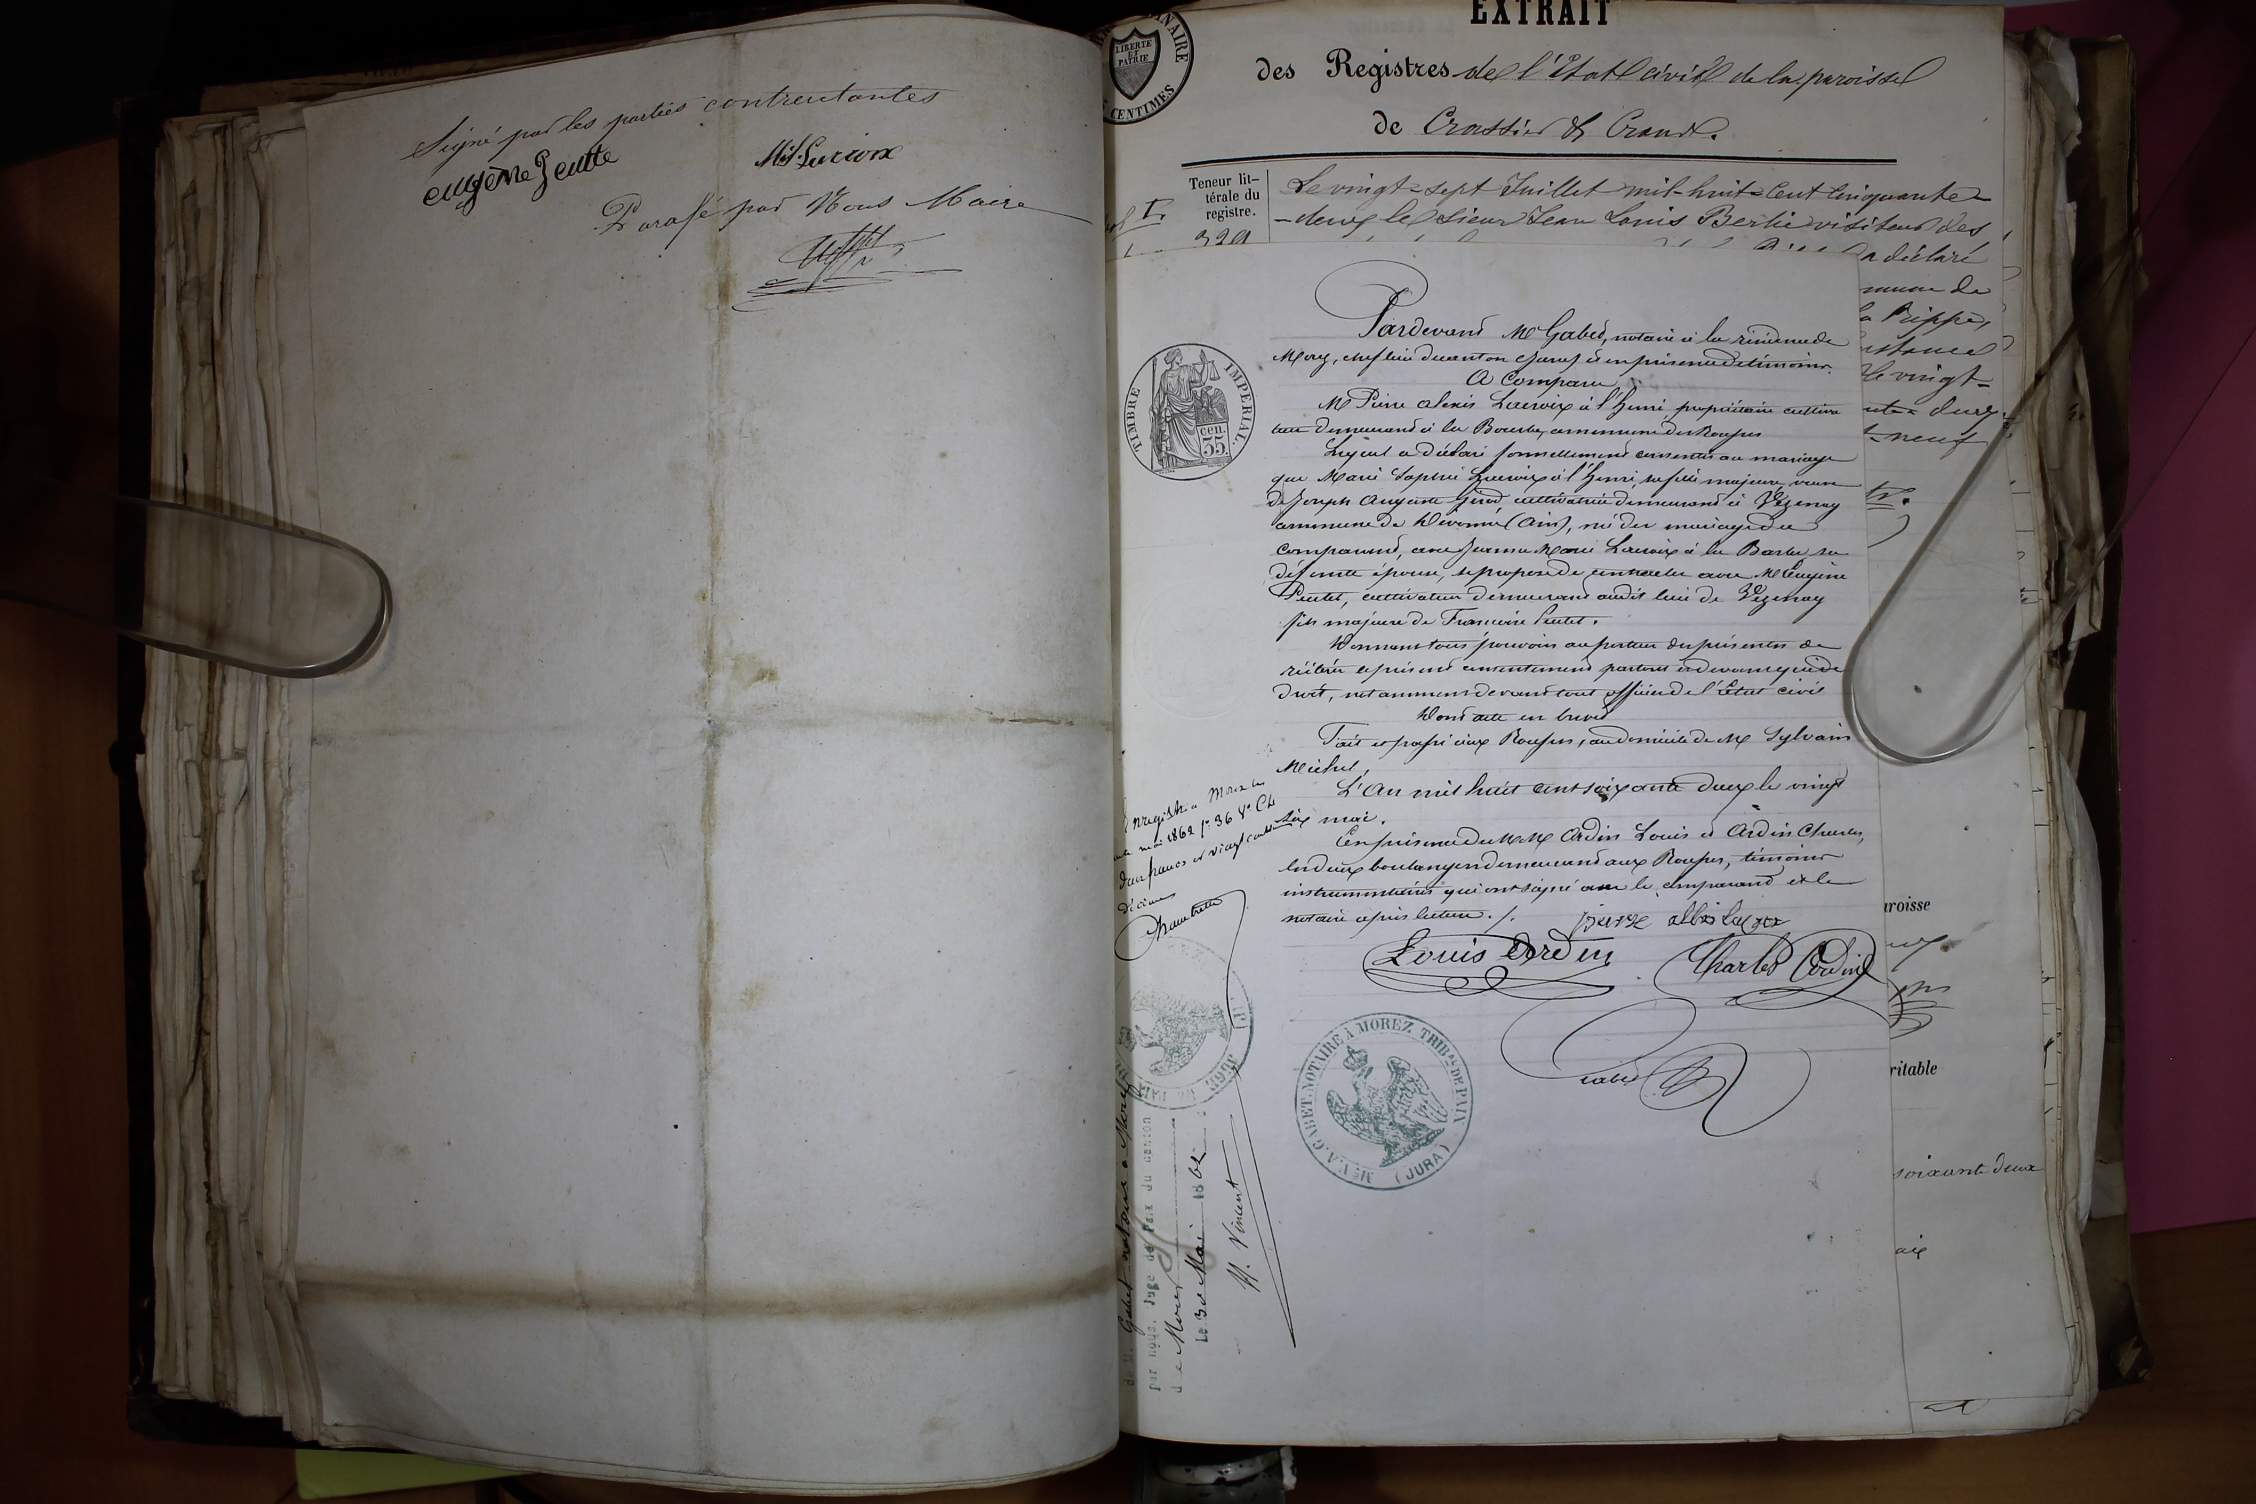 Signé par les parties contractantes
eugène Peutte
M.S. Lacroix
Parafé par Nous Maire
EXTRAIT
LIBERTE ET PATRIE
CENTIMES
des Registres de l'état civil de la paroisse
de Crassier & Crans.
Teneur lit-
térale du
registre.
Le vingt-sept Juillet mil huit-cent cinquante-
-deux le Sieur Jean Louis visiteur des
a déclaré
la Rippe,
le vingt-
neuf
Pardevant Me Gabet, notaire à la résidence de
Morez, chef lieu de canton (Jura) & en présence de témoins.
A Comparu
M. Pierre Alexis Lacroix à l'Henri, propriétaire cultiva
teur demeurant à la Bourbe, commune des Rousses
Lequel a déclaré formellement consentir au mariage
que Marie Sophie Lacroix à l'Henri, sa fille majeure, veuve
de Joseph Auguste Girod, cultivatrice demeurant à Vézenay
commune de Divonne (Ain), née du mariage du
comparant, avec Jeanne Marie Lacroix à la Barbe sa
défunte épouse, se propose de contracter avec M. Eugène
Peutet, cultivateur demeurant audit lieu de Vézenay
fils majeur de Françoise Peutet.
Donnant tous pouvoirs au porteur des présentes de
réitérer le présent consentement partout et devant qui de
droit, notamment devant tout officier de l'Etat civil
Dont acte en brevet
Fait et passé aux Rousses, au domicile de M. Sylvain
Michel,
L'An mil huit cent soixante deux le vingt
six mai.
En présence de MM. Ardin Louis et Ardin Charles,
tous deux boulangers demeurant aux Rousses, témoins
instrumentaires qui ont signé avec le comparant et le
notaire après lecture. /.
Louis Ardin
Charles Ardin
Gabet
TIMBRE IMPERIAL.
35 cen.
Enregistré à Morez le
mai 1862 fo 36 Vo
deux francs et vingt centimes
décimes
Me V.A. GABET. NOTAIRE À MOREZ. TRIBAL DE PAIX (JURA)
de M. Gabet notaire à Morez
par nous, Juge de Paix du canton
de Morez
Le 30 Mai 1862
H. Vincent
paroisse
véritable
soixante deux